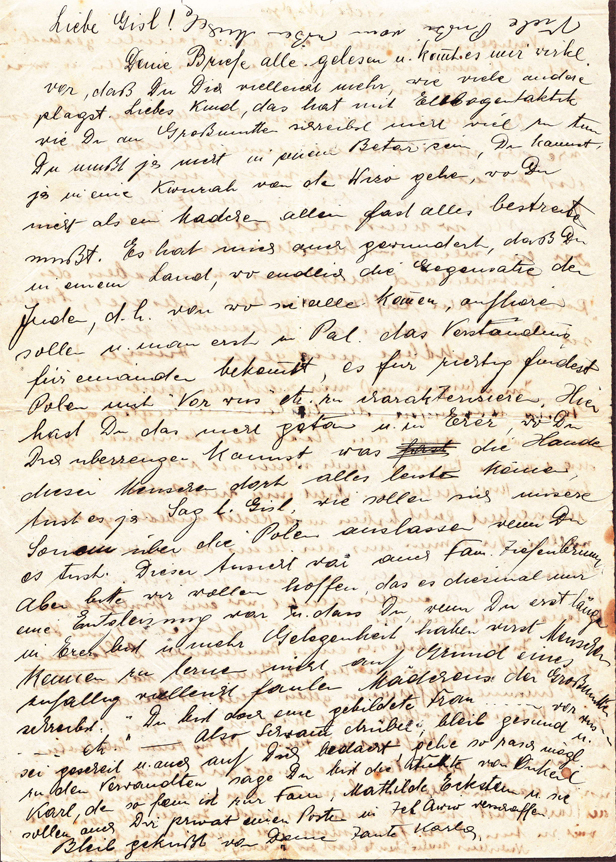 Liebe Gisl! Viele Grüße vom
Deine Briefe alle gelesen u. kommt es mir wirkl.
vor, daß Du Dir vielleicht mehr, wie viele andere
plagst. Liebes Kind, das hat mit Ellbogentaktik
wie Du an Großmutter schreibst nicht viel zu tun
Du mußt ja nicht in einem Betar sein, Du kannst
ja in eine Kwuzah von der Wizo gehe, wo Du
nicht als en anderen allen fast alles bestreite
mußt. Es hat mich auch gewundert, daß Du
in einem Land, wo endlich die Gegensatze der
Juden, d. h. von wo sie alle komen, aufhören
sollen u. man erst in Pal. das Verständnis
füreinander bekommt, es für richtig findest
Polen mit Vor uns etz. zu charakterisieren. Hier
hast Du das nicht getan u. in Erez, wo Du
Dich überzeugen kannst was die Hände
dieser Menschen dort alles leiste können,
tust es ja. Sag l. Gisl, wie sollen sich unsere
Sonem über die Polen auslassen wenn Du
es tust. Dieser Ansicht war auch Fam. Tiefenbrunn
Aber bitte wir wollen hoffen, das es diesmal nur
eine Entgleisung war u. dass Du, wenn Du erst länger
in Erez bist u. mehr Gelegenheit haben wirst Menschen
kennen zu lerne nicht auf Grund eines
zufallig vielleicht faulen Mäderens der Großmutter
schreibst: "Du bist doch eine gebildete Frau vor uns
etz" Also bleib gesund u.
sei gescheit u. auch auf Dich bedacht, gehe so rasch mögl.
zu den Verwandten sage Du bist die Nichte von Onkel
Karl, de so fein ist zur Fam. Mathilde Eckstein u. sie
sollen auch Dir privat einen Posten in Tel Awiw verschaffen
Bleib geküßt von Deine Tante Karla,